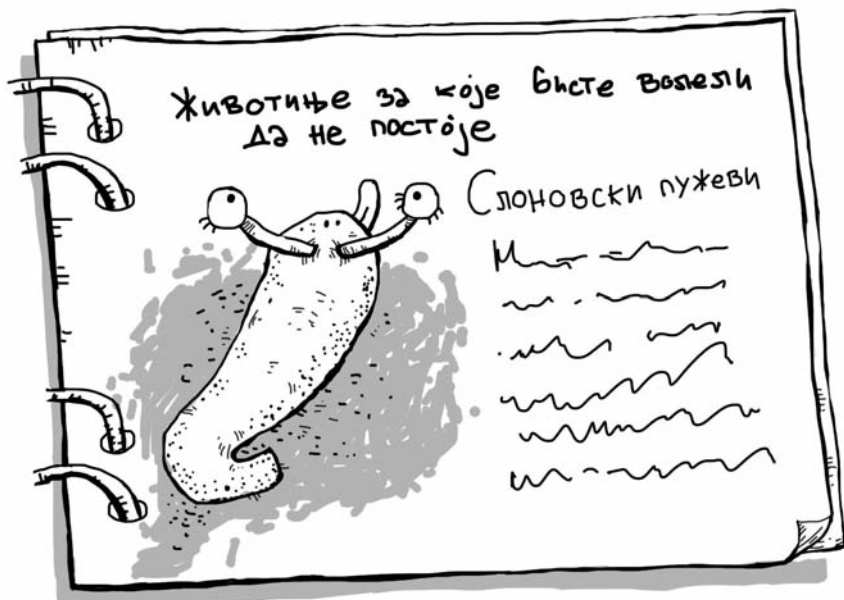 Животиње за које бисте волели
да не постоје
Слоновски пужеви